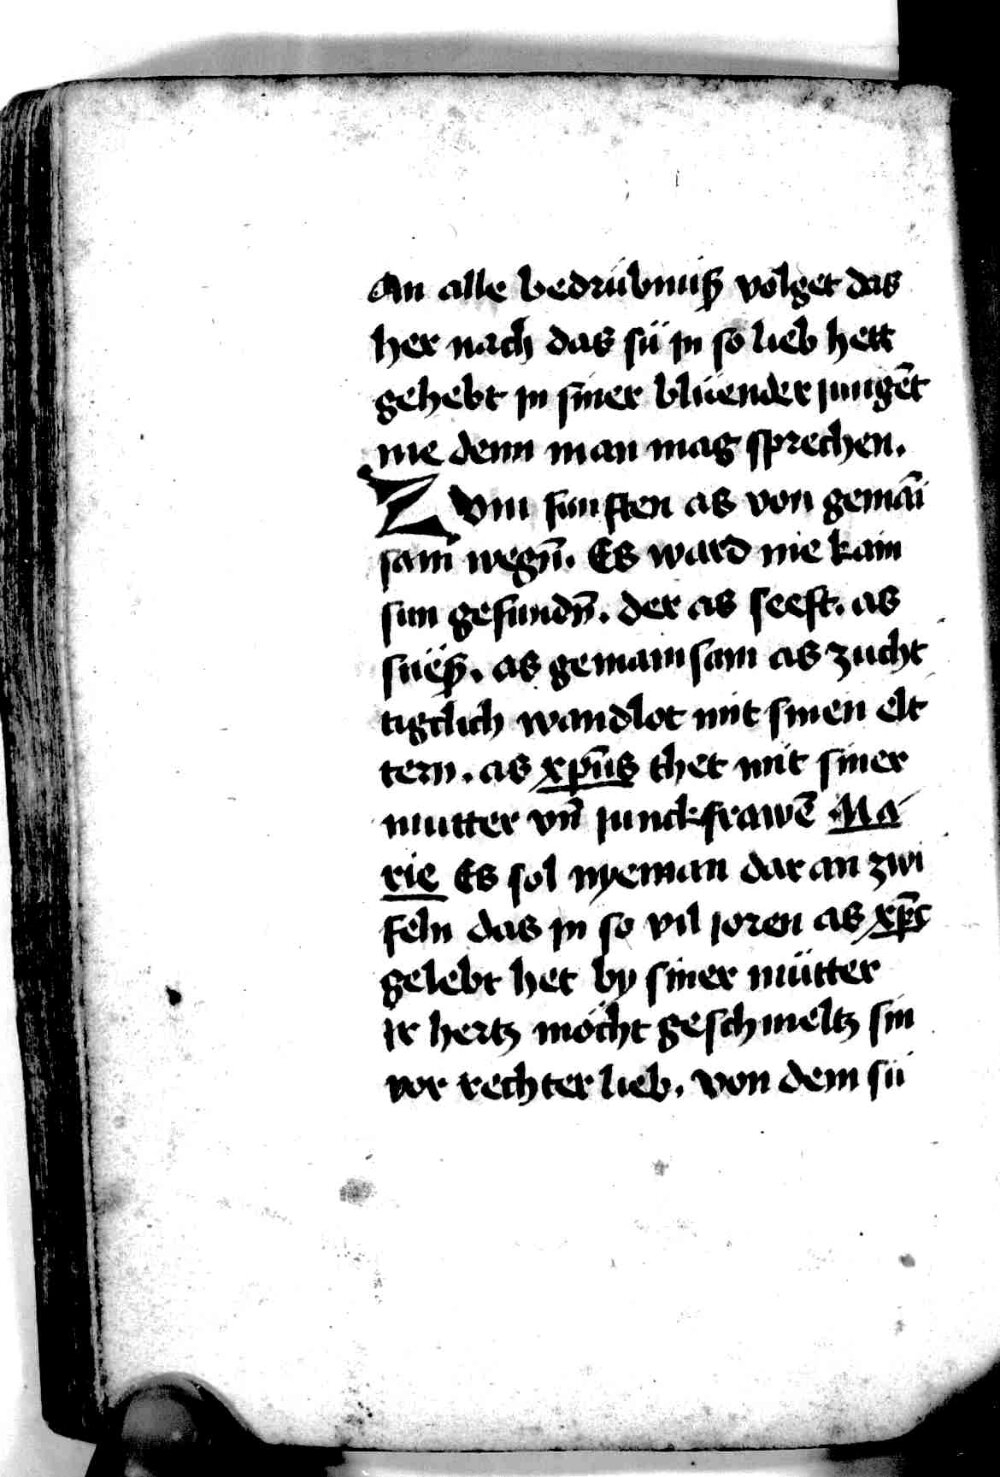 An alle bedrübnuiß volget das
her nach das sü in so lieb hett
gehebt in siner blüender jungēt
me denn man mag sprechen.
Zvm funften as von gemāi
sam wegn̄. Es ward nie kain
sun gefundn̄. der as seeft. as
süeß. as gemainsam as zucht
tigclich wandlot mit sinen elt
tern. as xp̄us thet mit siner
mutter vn̄ junckfrawē Ma
rie Es sol nyeman dar an zwi
feln das in so vil joren as xp̄c
gelebt het by siner mütter
ir hertz möcht geschmeltz sin
vor rechter lieb. von dem sü